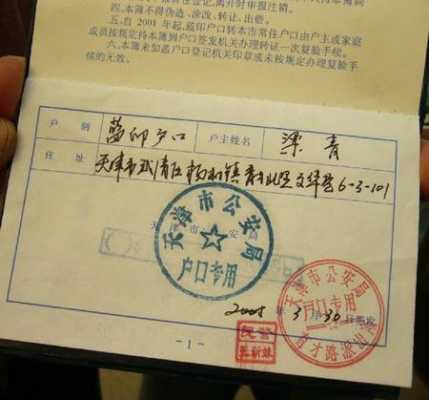 四、本簿不得伪造、涂改、转让、出借。
五、自2001年起,蓝印户口转本市常住户口由户主或家庭
成员按规定持本簿到户口签发机关办理转证一次复验手续。
六、本簿未加盖户口登记机关印章或未按规定办理复验手
续的无效。
户别 蓝印户口 户主姓名 梁青
住址 天津市武清区杨村镇 6-3-101
天津市公安局
户口专用
2005年3月30日
天津市公安局
户口专用
-1-